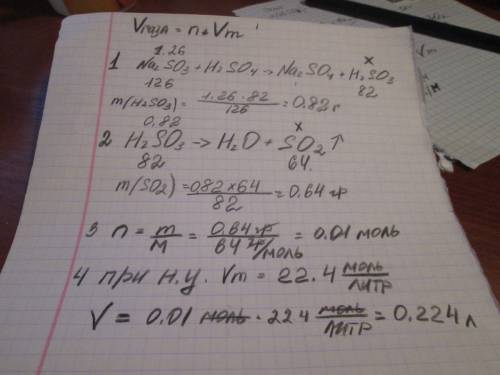 Vгаза = n * Vm
1.26 x
1 Na2SO3 + H2SO4 → Na2SO4 + H2SO3
126 82
m(H2SO3) = 1.26 · 82 / 126 = 0.82 г
0,82 x
2 H2SO3 → H2O + SO2 ↑
82 64.
m(SO2) = 0.82 × 64 / 82 = 0.64 гр
3 n = m / M = 0,64 гр / 64 гр/моль = 0.01 моль
4 при н.у. Vm = 22.4 моль / литр
V = 0.01 моль · 224 моль / литр = 0.224 л